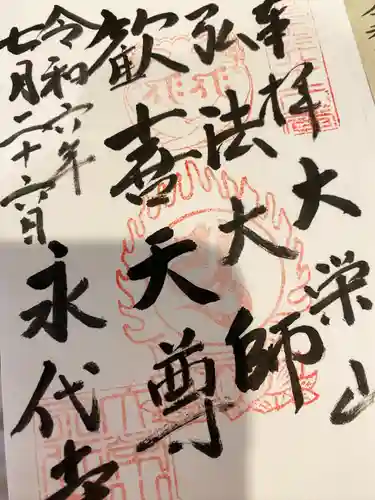 奉拝
大栄山
弘法大師
歓喜天尊
令和六年
七月二十六日
永代寺